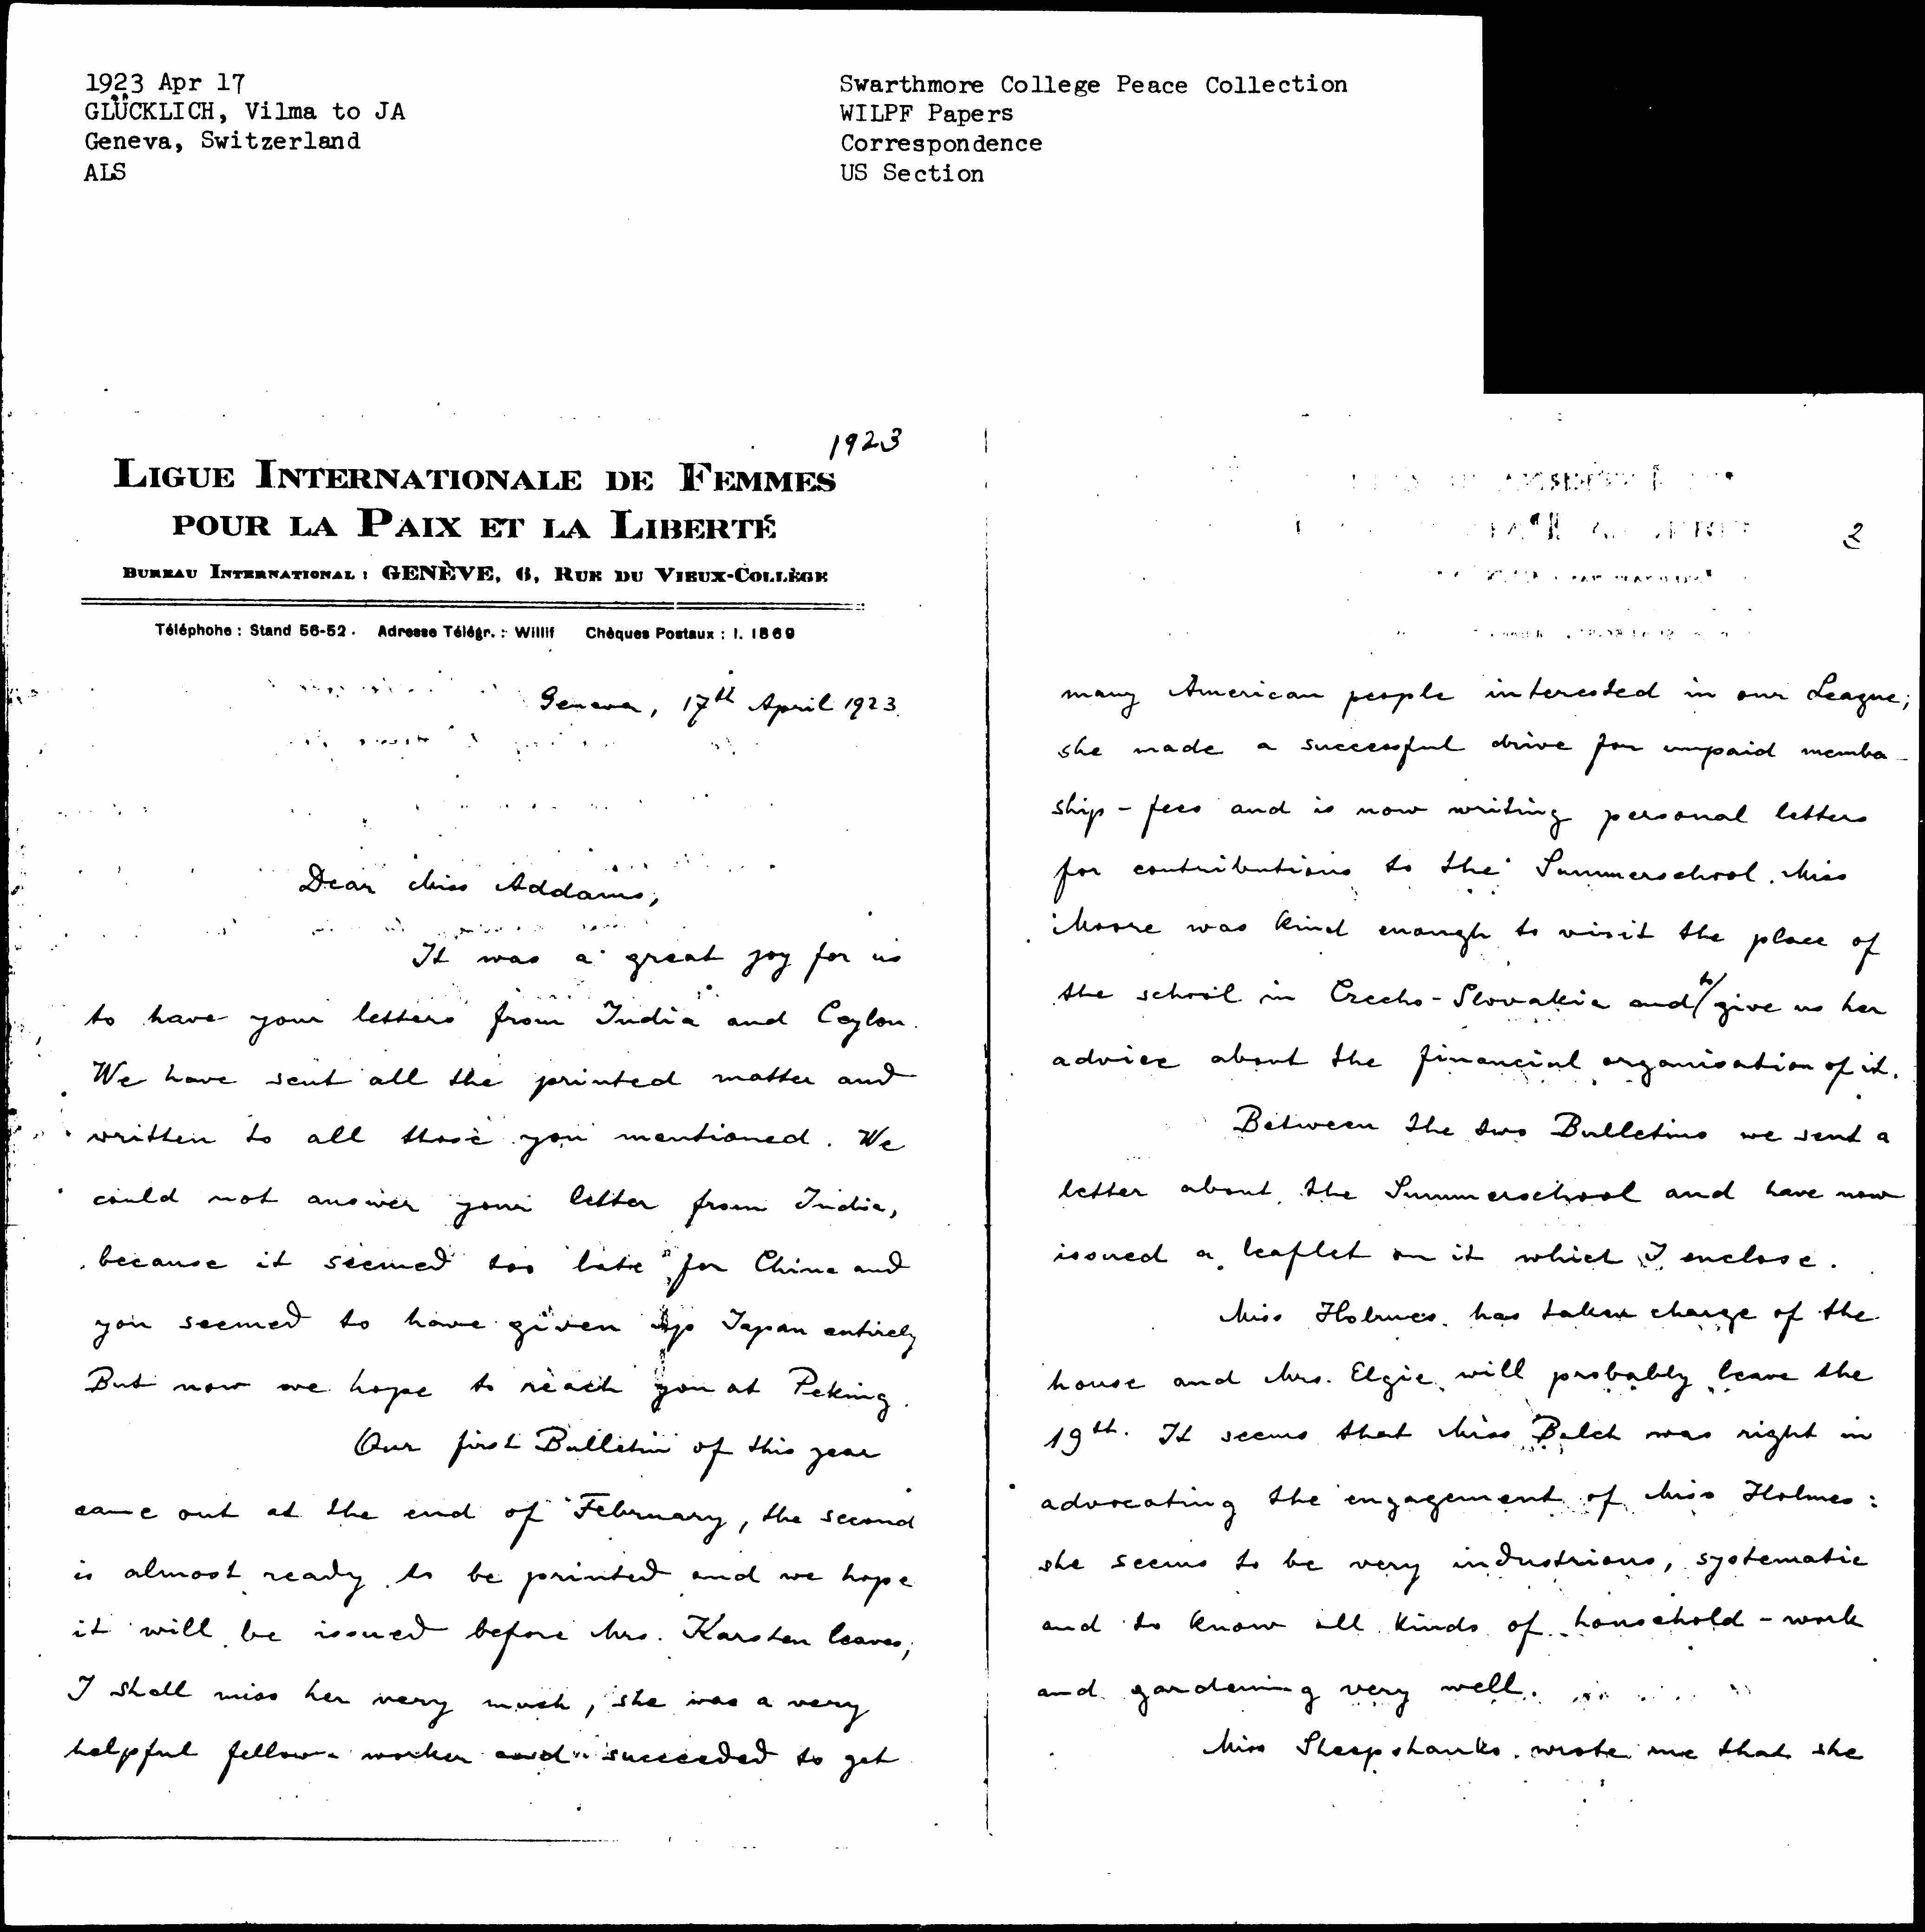 1923 Apr 17
GLÜCKLICH, Vilma to JA
Geneva, Switzerland
ALS
Swarthmore College Peace Collection
WILPF Papers
Correspondence
US Section
1923
LIGUE INTERNATIONALE DE FEMMES
POUR LA PAIX ET LA LIBERTÉ
BUREAU INTERNATIONAL : GENÈVE, 6, RUE DU VIEUX-COLLÈGE
Téléphone : Stand 56-52. Adresse Télégr. : Willif Chèques Postaux : I. 1869
Geneva, 17th April 1923.
Dear Miss Addams,
It was a great joy for us
to have your letters from India and Ceylon.
We have sent all the printed matter and
written to all those you mentioned. We
could not answer your letter from India,
because it seemed too late for China and
you seemed to have given up Japan entirely
But now we hope to reach you at Peking.
Our first Bulletin of this year
came out at the end of February, the second
is almost ready to be printed and we hope
it will be issued before Mrs. Karsten leaves;
I shall miss her very much, she was a very
helpful fellow-worker and succeeded to get
2
many American people interested in our League;
she made a successful drive for unpaid membe-
ship-fees and is now writing personal letters
for contributions to the Summerschool. Miss
Moore was kind enough to visit the place of
the school in Czecho-Slovakia and to give us her
advice about the financial organisation of it.
Between the two Bulletins we sent a
letter about the Summerschool and have now
issued a leaflet on it which I enclose.
Miss Holmes has taken charge of the
house and Mrs. Elgie will probably leave the
19th. It seems that Miss Balch was right in
advocating the engagement of Miss Holmes:
she seems to be very industrious, systematic
and to know all kinds of household-work
and gardening very well.
Miss Sheepshanks wrote me that she